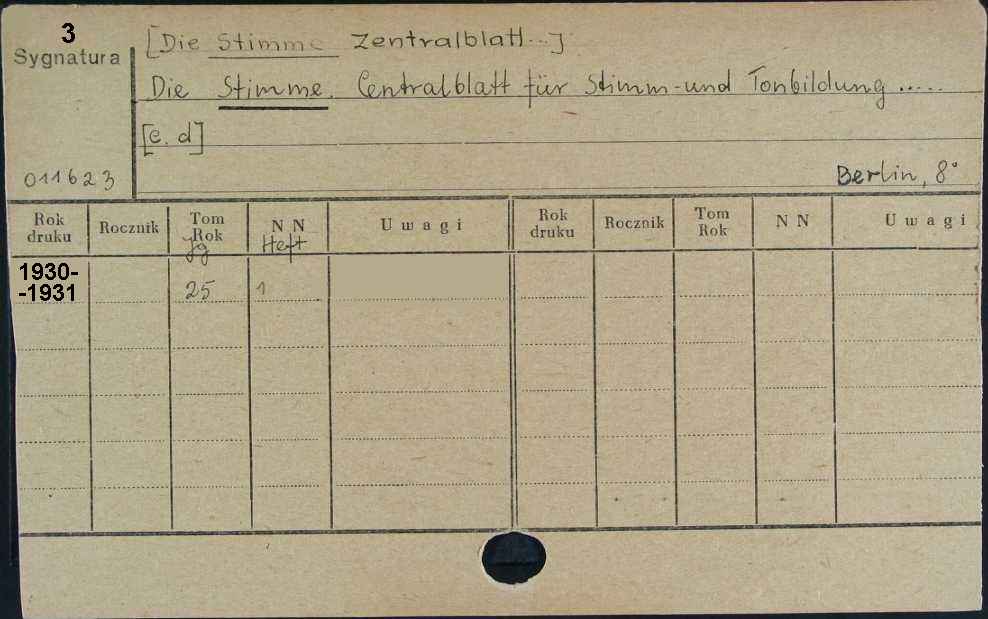 3
Sygnatura
[Die Stimme Zentralblatt...]
Die Stimme. Centralblatt für Stimm-und Tonbildung .....
[c. d]
011623
Berlin, 8°
Rok druku Rocznik Tom Rok Jg N N Heft Uwagi Rok druku Rocznik Tom Rok N N Uwagi
1930-
-1931 25 1